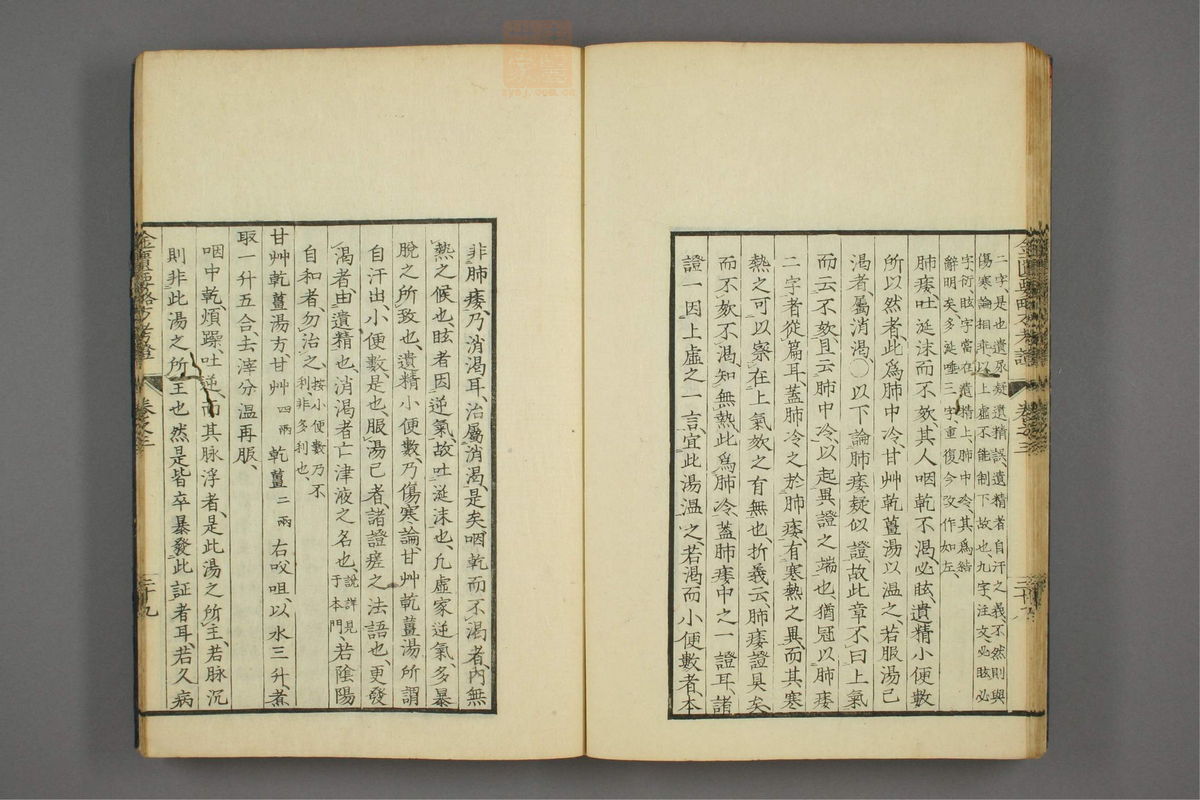 二字、是也、遺尿疑遺精誤、遺精者自汗之義、不然則與
傷寒論相乖、以上虛不能制下故也、九字、注文、必眩必
字衍、眩字當在遺精上、肺中冷、其爲結
辭明矣、多涎唾三字、重復、今攷作如左、
肺痿吐涎沫而不欬、其人咽乾不渴、必眩、遺精小便數
所以然者、此爲肺中冷、甘艸乾薑湯以溫之、若服湯已
渴者、屬消渴、〇以下論肺痿疑似證、故此章不曰上氣
而云不欬、且云肺中冷、以起異證之端也、猶冠以肺痿
二字者從篇耳、蓋肺冷之於肺痿、有寒熱之異、而其寒
熱之可以察、在上氣欬之有無也、折義云、肺痿證具矣、
而不欬不渴、知無熱、此爲肺冷、蓋肺痿中之一證耳、諸
證一因上虛之一言、宜此湯溫之、若渴而小便數者、本
非肺痿、乃消渴耳、治屬消渴、是矣、咽乾而不渴者、內無
熱之候也、眩者因逆氣、故吐涎沫也、凡虛家逆氣、多暴
脫之所致也、遺精小便數、乃傷寒論、甘艸乾薑湯所謂
自汗出、小便數是也、服湯已者、諸證瘥之法語也、更發
渴者、由遺精也、消渴者亡津液之名也、說詳見
于本門、若陰陽
自和者、勿治之、按小便數乃不
利、非多利也、
甘艸乾薑湯方甘艸四兩 乾薑二兩 右㕮咀、以水三升、煮
取一升五合、去滓分溫再服、
咽中乾、煩躁、吐逆、而其脉浮者、是此湯之所主、若脉沉
則非此湯之所主也、然是皆卒暴發此証者耳、若久病
金匱要略方考證 卷之三 二十九